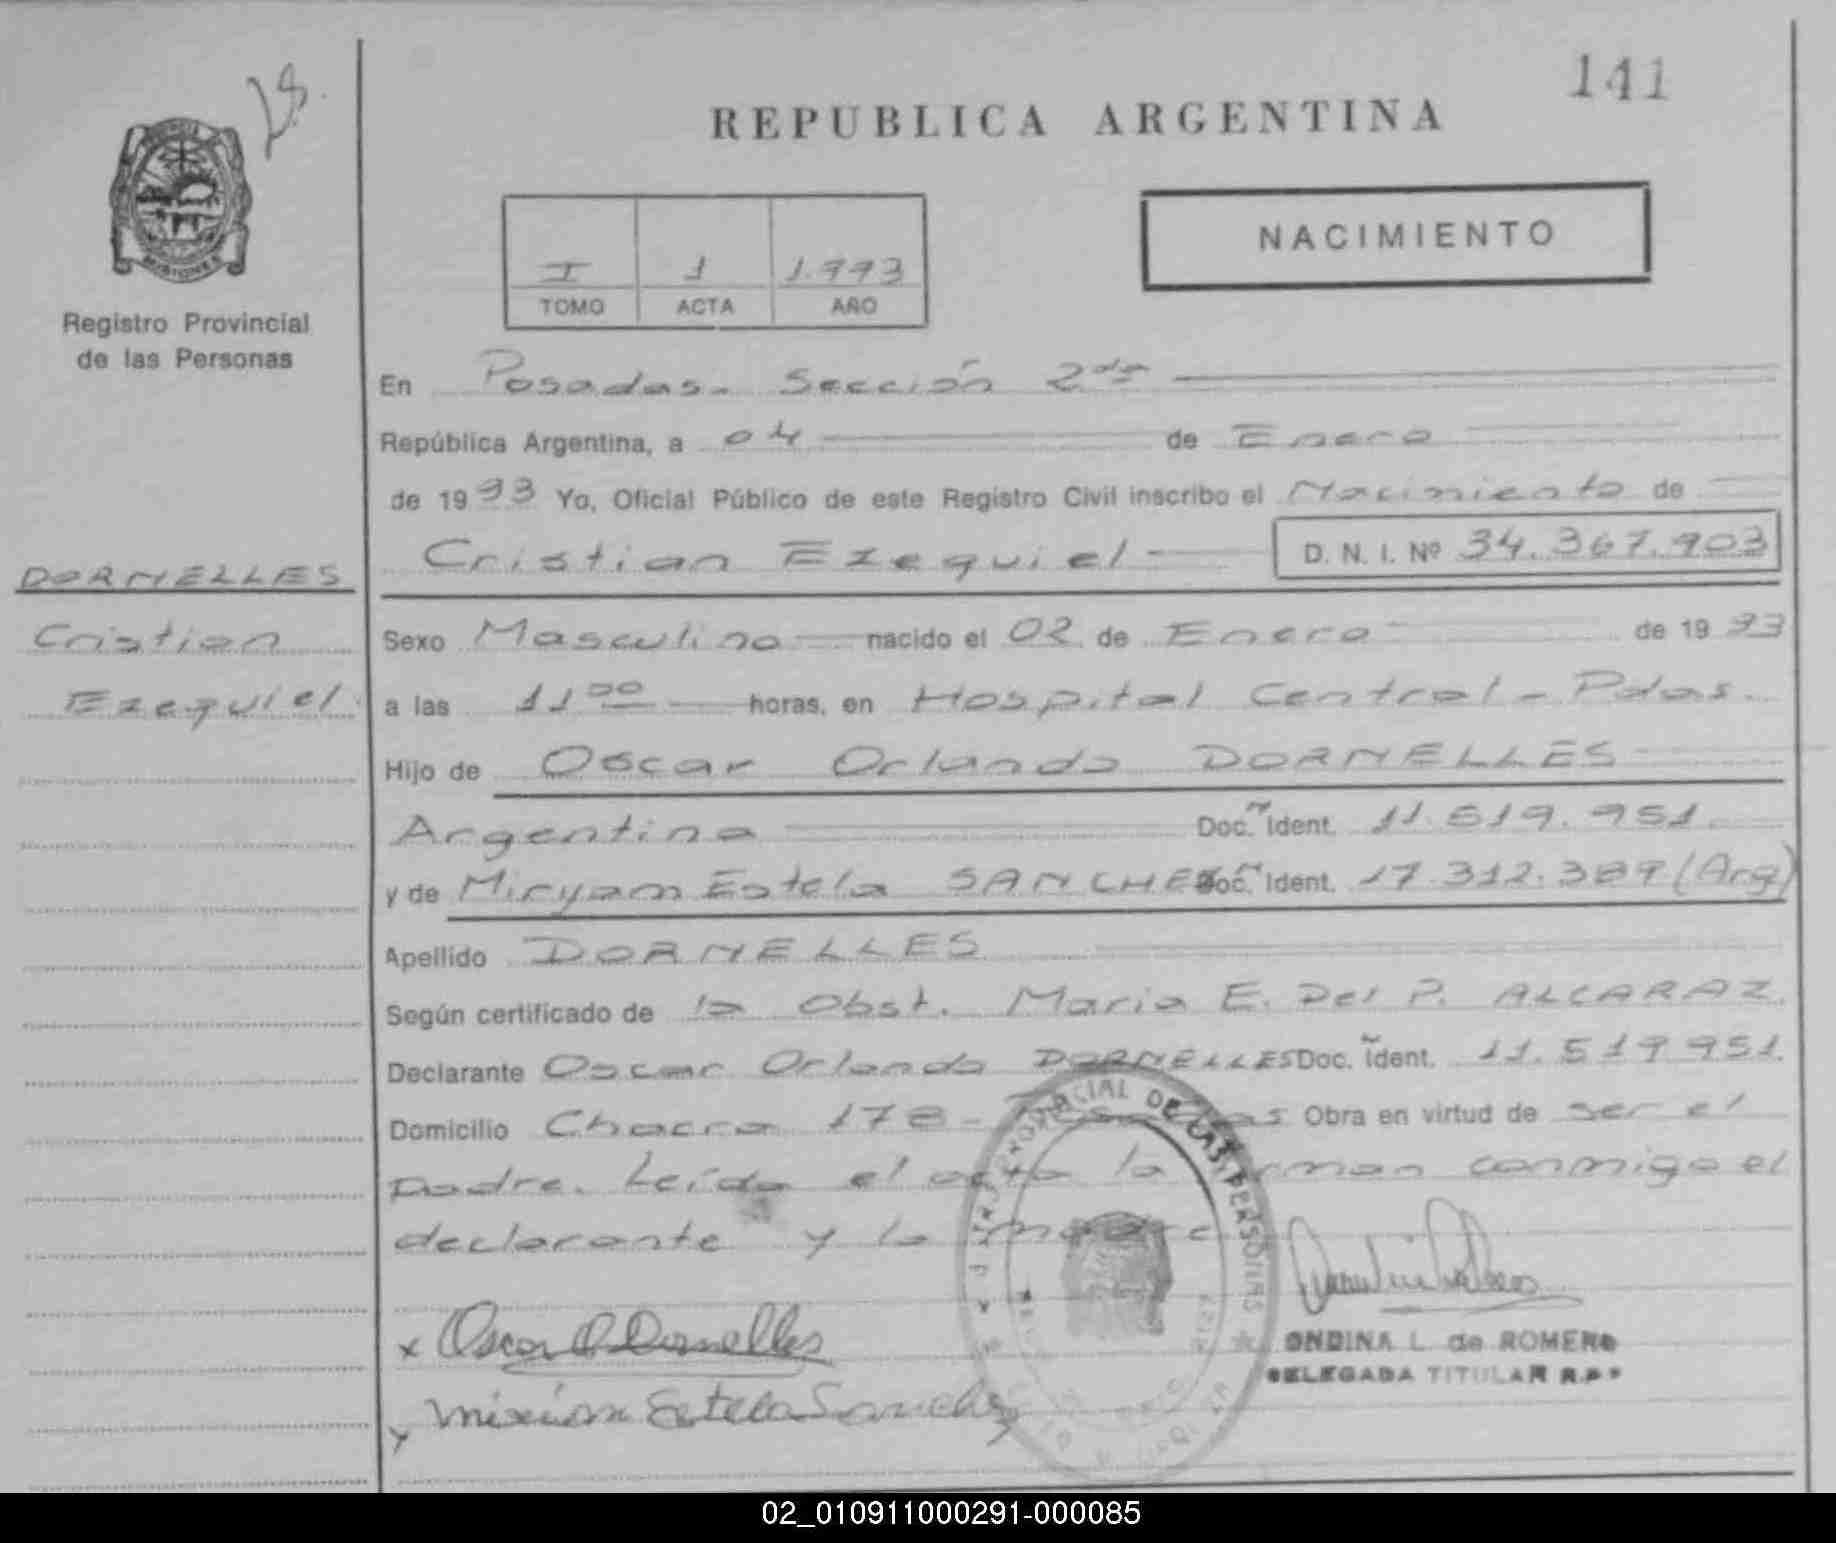 141
REPUBLICA ARGENTINA
MISIONES
Registro Provincial
de las Personas
I 1 1.993
TOMO ACTA AÑO
NACIMIENTO
En Posadas - Sección 2da
República Argentina, a 04 de Enero
de 1993 Yo, Oficial Público de este Registro Civil inscribo el Nacimiento de
Cristian Ezequiel D. N. I. Nº 34.367.903
DORNELLES
Cristian
Ezequiel
Sexo Masculino nacido el 02 de Enero de 1993
a las 11 00 horas, en Hospital Central - Pdas.
Hijo de Oscar Orlando DORNELLES
Argentino Doc. Ident. 11.519.951
y de Miryam Estela SANCHEZ Doc. Ident. 17.312.389 (Arg)
Apellido DORNELLES
Según certificado de la Obst. Maria E. Del P. ALCARAZ
Declarante Oscar Orlando DORNELLES Doc. Ident. 11.519.951
Domicilio Chacra 178 - Posadas Obra en virtud de ser el
padre. Leída el acta la firman conmigo el
declarante y la madre
PROVINCIAL DE LAS PERSONAS
x Oscar O Dornelles
x Miriam Estela Sanchez
ONDINA L. de ROMERO
DELEGADA TITULAR R.P.P
02_010911000291-000085